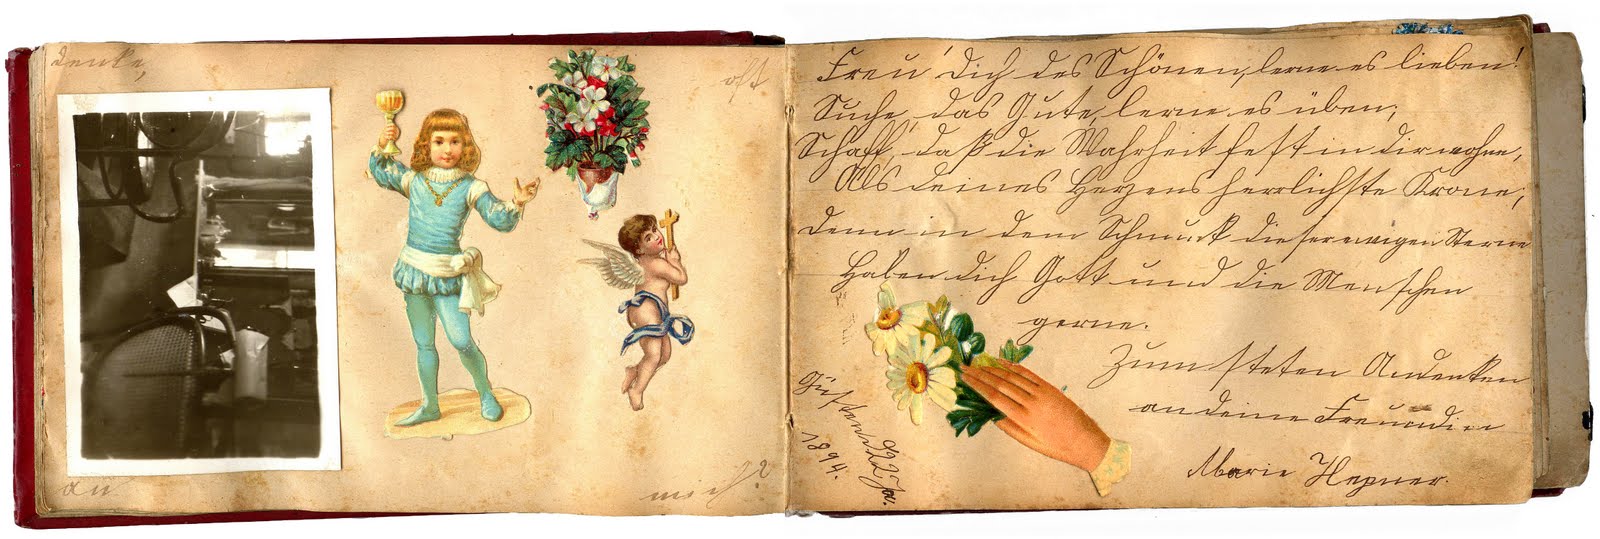 Denke,
oft
an
mich!
Freu' dich des Schönen, lerne es lieben!
Suche, das Gute, lerne es üben;
Schaff, daß die Wahrheit fest in dir wohne,
Als deines Herzens herrlichste Krone;
Denn in dem Schmuck dieser ewigen Sterne
Haben dich Gott und die Menschen
gerne.
Zum steten Andenken
an deine Freundin
Marie Hepner.
d. 22 Ja.
1894.